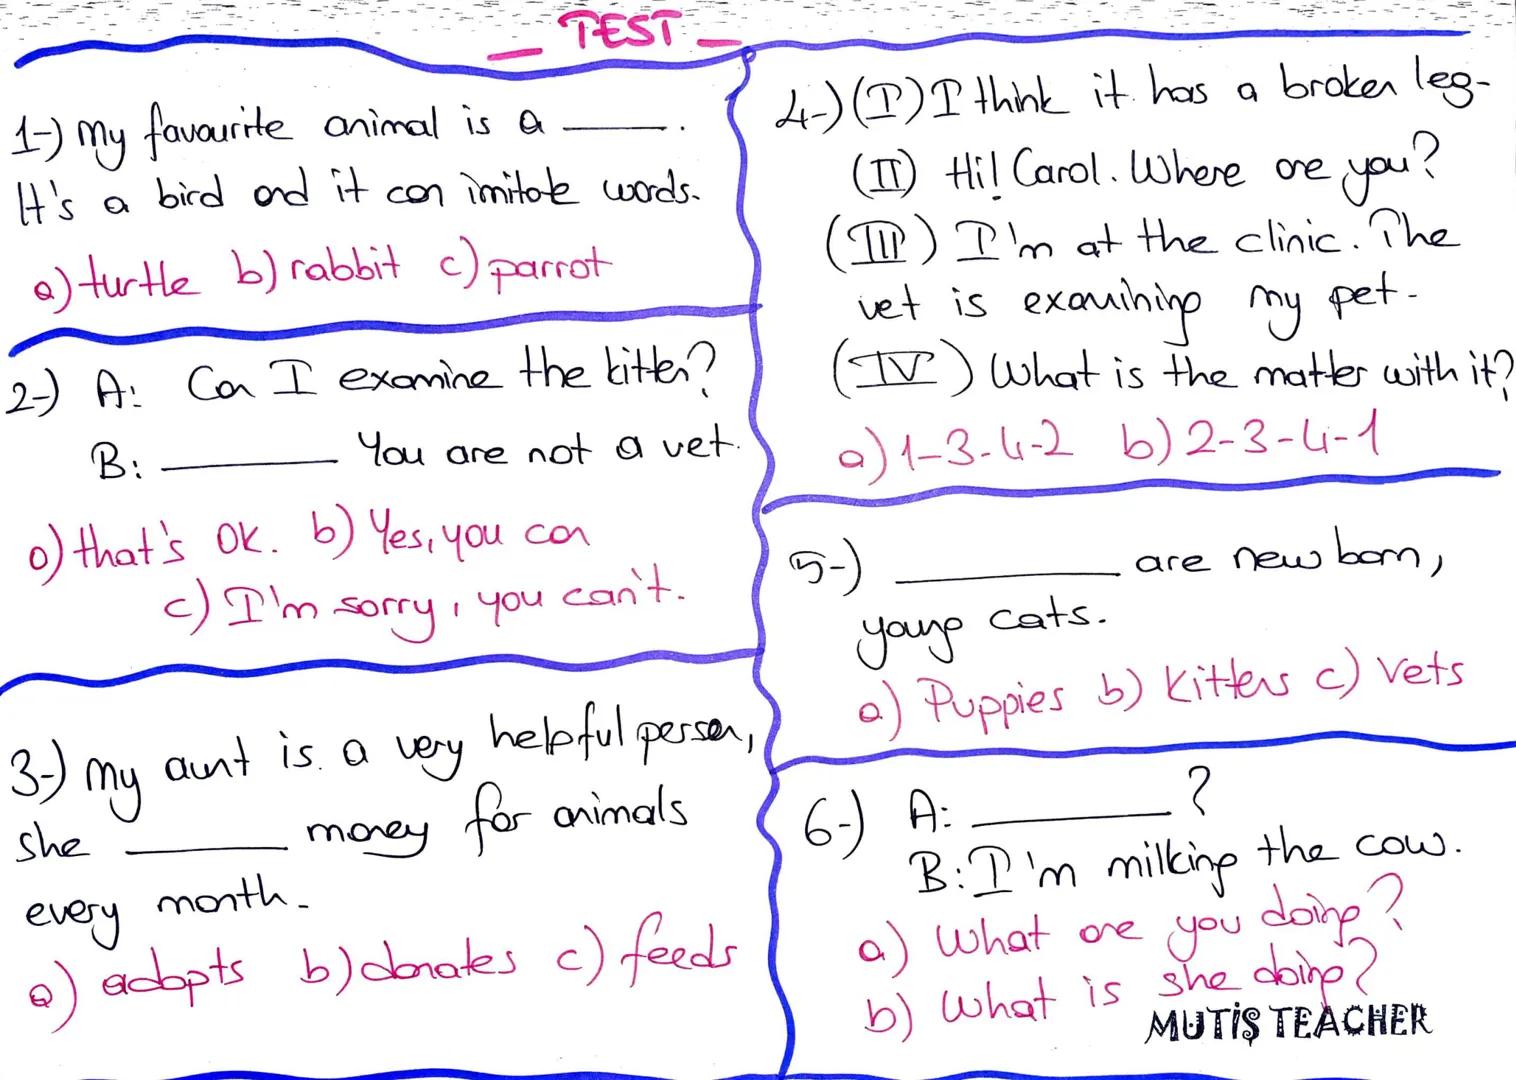 TEST
1-) My favourite animal is a ____.
It's a bird and it can imitate words.
a) turtle b) rabbit c) parrot
2-) A: Can I examine the kitten?
B: ____ You are not a vet.
a) that's OK. b) Yes, you can
c) I'm sorry, you can't.
3-) My aunt is a very helpful person,
she ____ money for animals
every month.
a) adopts b) donates c) feeds
4-) (I) I think it has a broken leg.
(II) Hi! Carol. Where are you?
(III) I'm at the clinic. The
vet is examining my pet.
(IV) What is the matter with it?
a) 1-3-4-2 b) 2-3-4-1
5-) ____ are new born,
young cats.
a) Puppies b) Kittens c) Vets
6-) A: ____?
B: I'm milking the cow.
a) What are you doing?
b) What is she doing?
MUTİŞ TEACHER